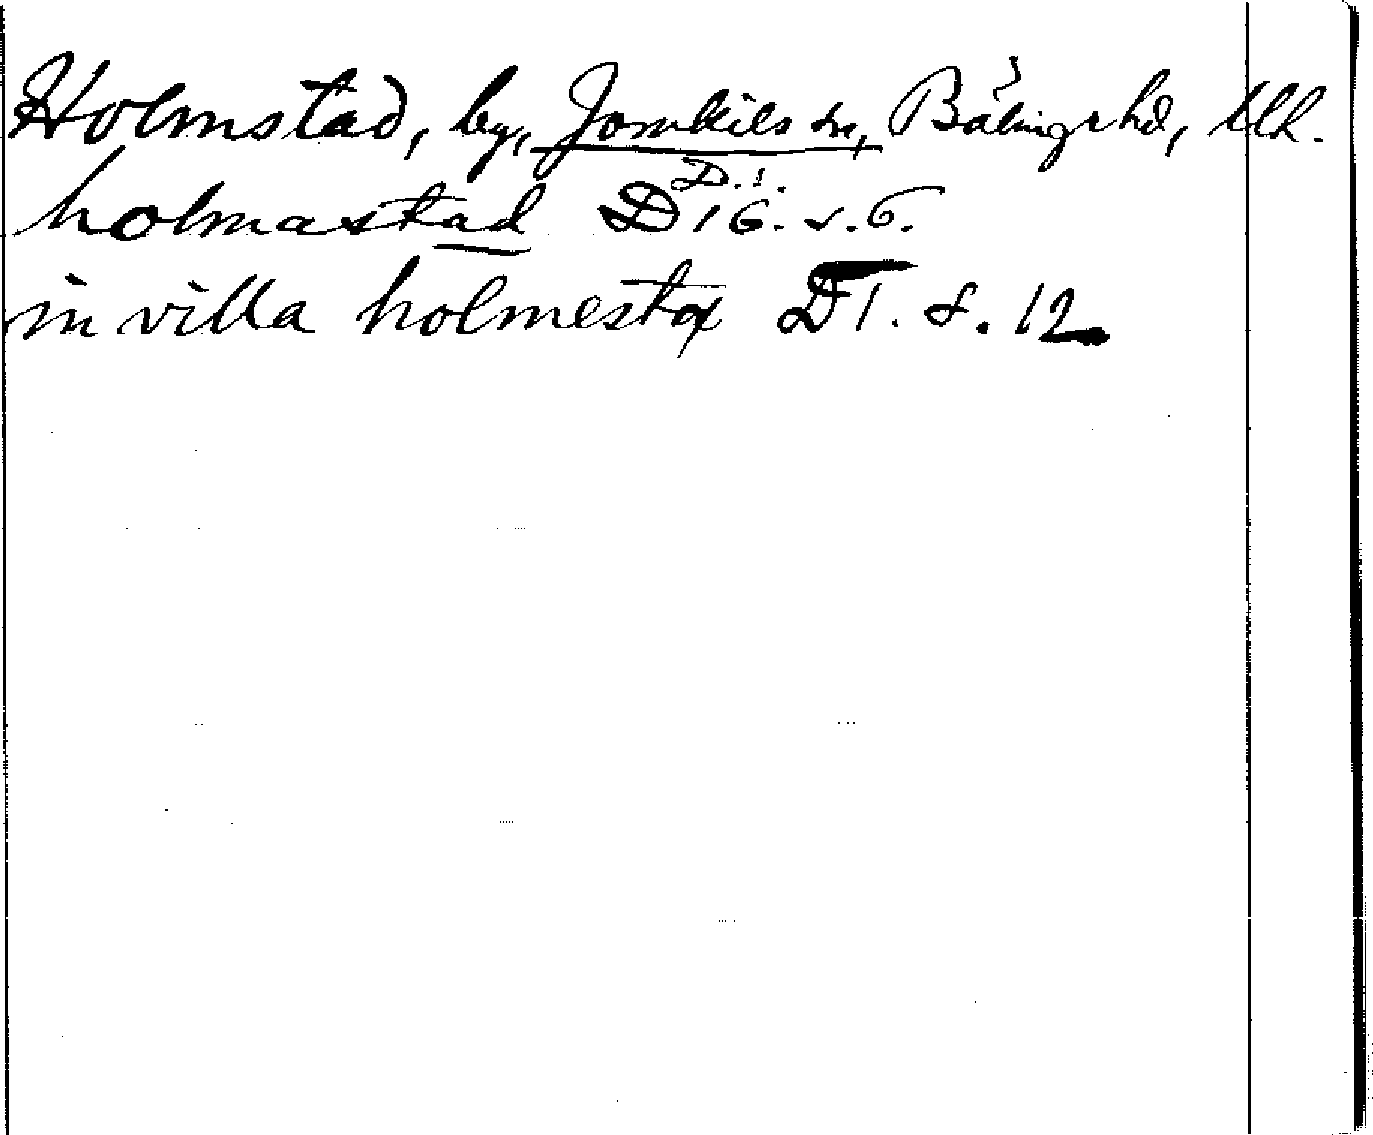 Holmstad, by, Jomkils sn, Bälings hd, Upl.
D. 1.
holmastad D 16. s. 6.
in villa holmesta D 1. s. 12